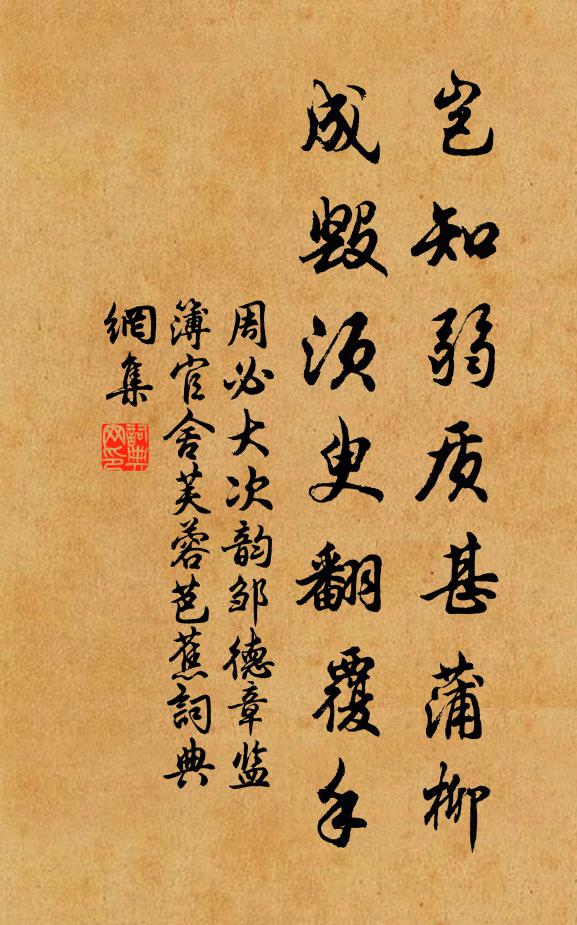 岂知弱质甚蒲柳
成毁须臾翻覆手
周必大次韵邹德章监
簿官舍芙蓉芭蕉詞典
網集
詞典
网印